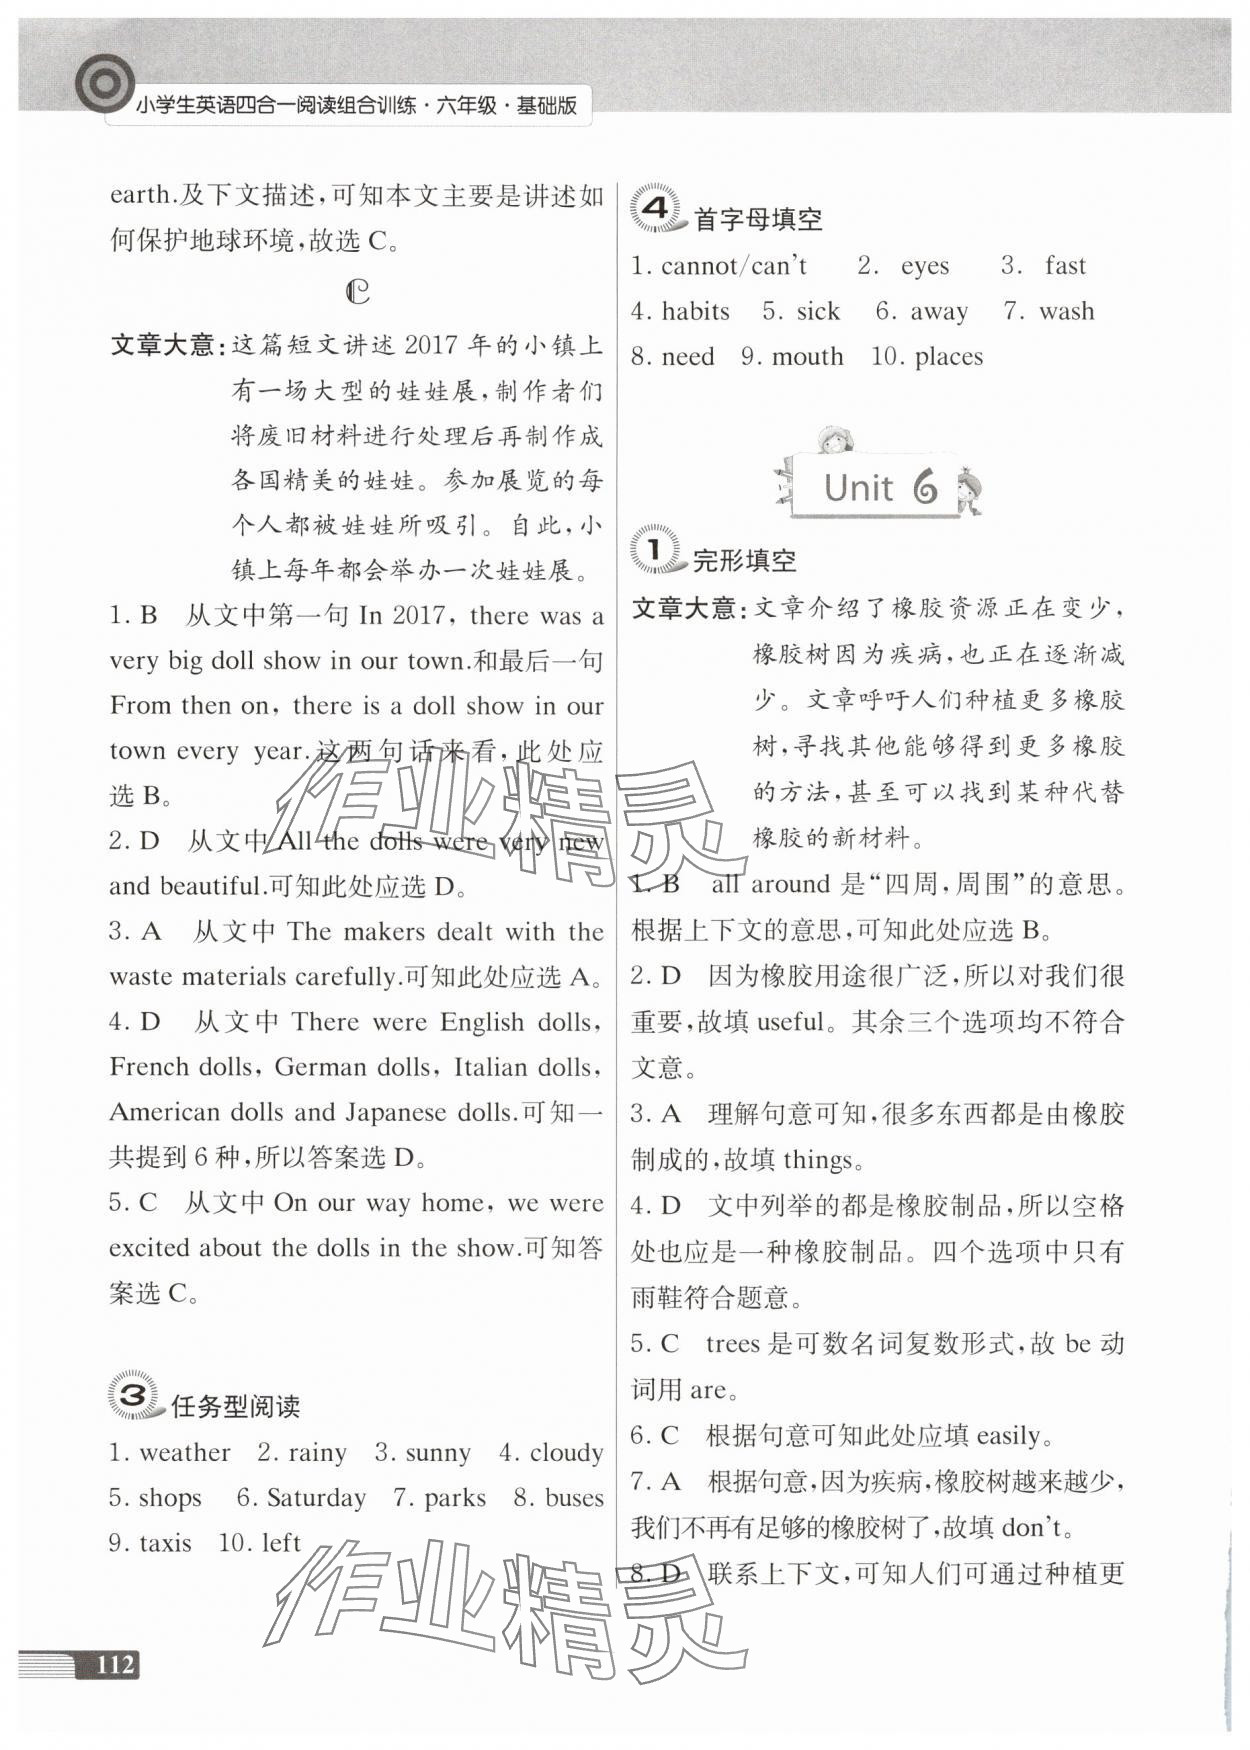 小学生英语四合一阅读组合训练·六年级·基础版
earth.及下文描述,可知本文主要是讲述如
何保护地球环境,故选 C。
C
文章大意:这篇短文讲述 2017 年的小镇上
有一场大型的娃娃展,制作者们
将废旧材料进行处理后再制作成
各国精美的娃娃。参加展览的每
个人都被娃娃所吸引。自此,小
镇上每年都会举办一次娃娃展。
1. B 从文中第一句 In 2017, there was a
very big doll show in our town.和最后一句
From then on, there is a doll show in our
town every year.这两句话来看,此处应
选 B。
2. D 从文中 All the dolls were very new
and beautiful.可知此处应选 D。
3. A 从文中 The makers dealt with the
waste materials carefully.可知此处应选 A。
4. D 从文中 There were English dolls,
French dolls, German dolls, Italian dolls,
American dolls and Japanese dolls.可知一
共提到 6 种,所以答案选 D。
5. C 从文中 On our way home, we were
excited about the dolls in the show.可知答
案选 C。
3 任务型阅读
1. weather 2. rainy 3. sunny 4. cloudy
5. shops 6. Saturday 7. parks 8. buses
9. taxis 10. left
4 首字母填空
1. cannot/can't 2. eyes 3. fast
4. habits 5. sick 6. away 7. wash
8. need 9. mouth 10. places
Unit 6
1 完形填空
文章大意:文章介绍了橡胶资源正在变少,
橡胶树因为疾病,也正在逐渐减
少。文章呼吁人们种植更多橡胶
树,寻找其他能够得到更多橡胶
的方法,甚至可以找到某种代替
橡胶的新材料。
1. B all around 是“四周,周围”的意思。
根据上下文的意思,可知此处应选 B。
2. D 因为橡胶用途很广泛,所以对我们很
重要,故填 useful。其余三个选项均不符合
文意。
3. A 理解句意可知,很多东西都是由橡胶
制成的,故填 things。
4. D 文中列举的都是橡胶制品,所以空格
处也应是一种橡胶制品。四个选项中只有
雨鞋符合题意。
5. C trees 是可数名词复数形式,故 be 动
词用 are。
6. C 根据句意可知此处应填 easily。
7. A 根据句意,因为疾病,橡胶树越来越少,
我们不再有足够的橡胶树了,故填 don't。
8. D 联系上下文,可知人们可通过种植更
作业精灵
作业精灵
112